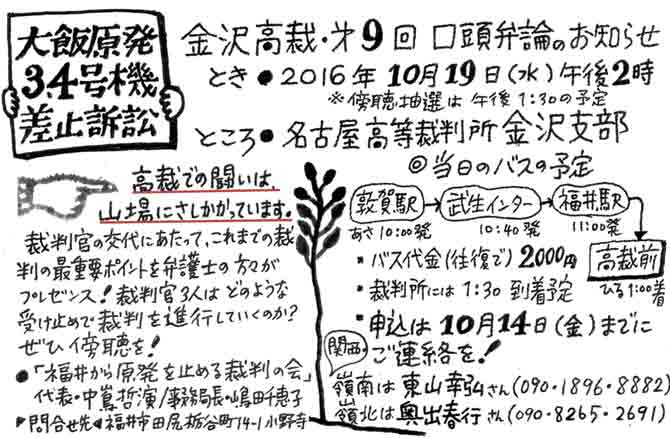 大飯原発
3.4号機
差止訴訟
金沢高裁・才9回 口頭弁論のお知らせ
とき●2016年10月19日(水)午後2時
※傍聴抽選は 午後1:30の予定
ところ●名古屋高等裁判所金沢支部
◎当日のバスの予定
敦賀駅→武生インター→福井駅
あさ10:00発 10:40発 11:00発
高裁前
ひる1:00着
・バス代金(往復で)2000円
・裁判所には1:30到着予定
・申込は10月14日(金)までに
ご連絡を!
関西・
嶺南は 東山幸弘さん(090・1896・8882)
嶺北は 奥出春行さん(090-8265-2691)
高裁での闘いは、
山場にさしかかっています。
裁判官の交代にあたって、これまでの裁
判の最重要ポイントを弁護士の方々が
プレゼンス!裁判官3人はどのような
受け止めで裁判を進行していくのか?
ぜひ傍聴を!
●「福井から原発を止める裁判の会」
代表・中嶌哲演/事務局長・嶋田千恵子
問合せ先◀福井市田尻栃谷町14-1小野寺